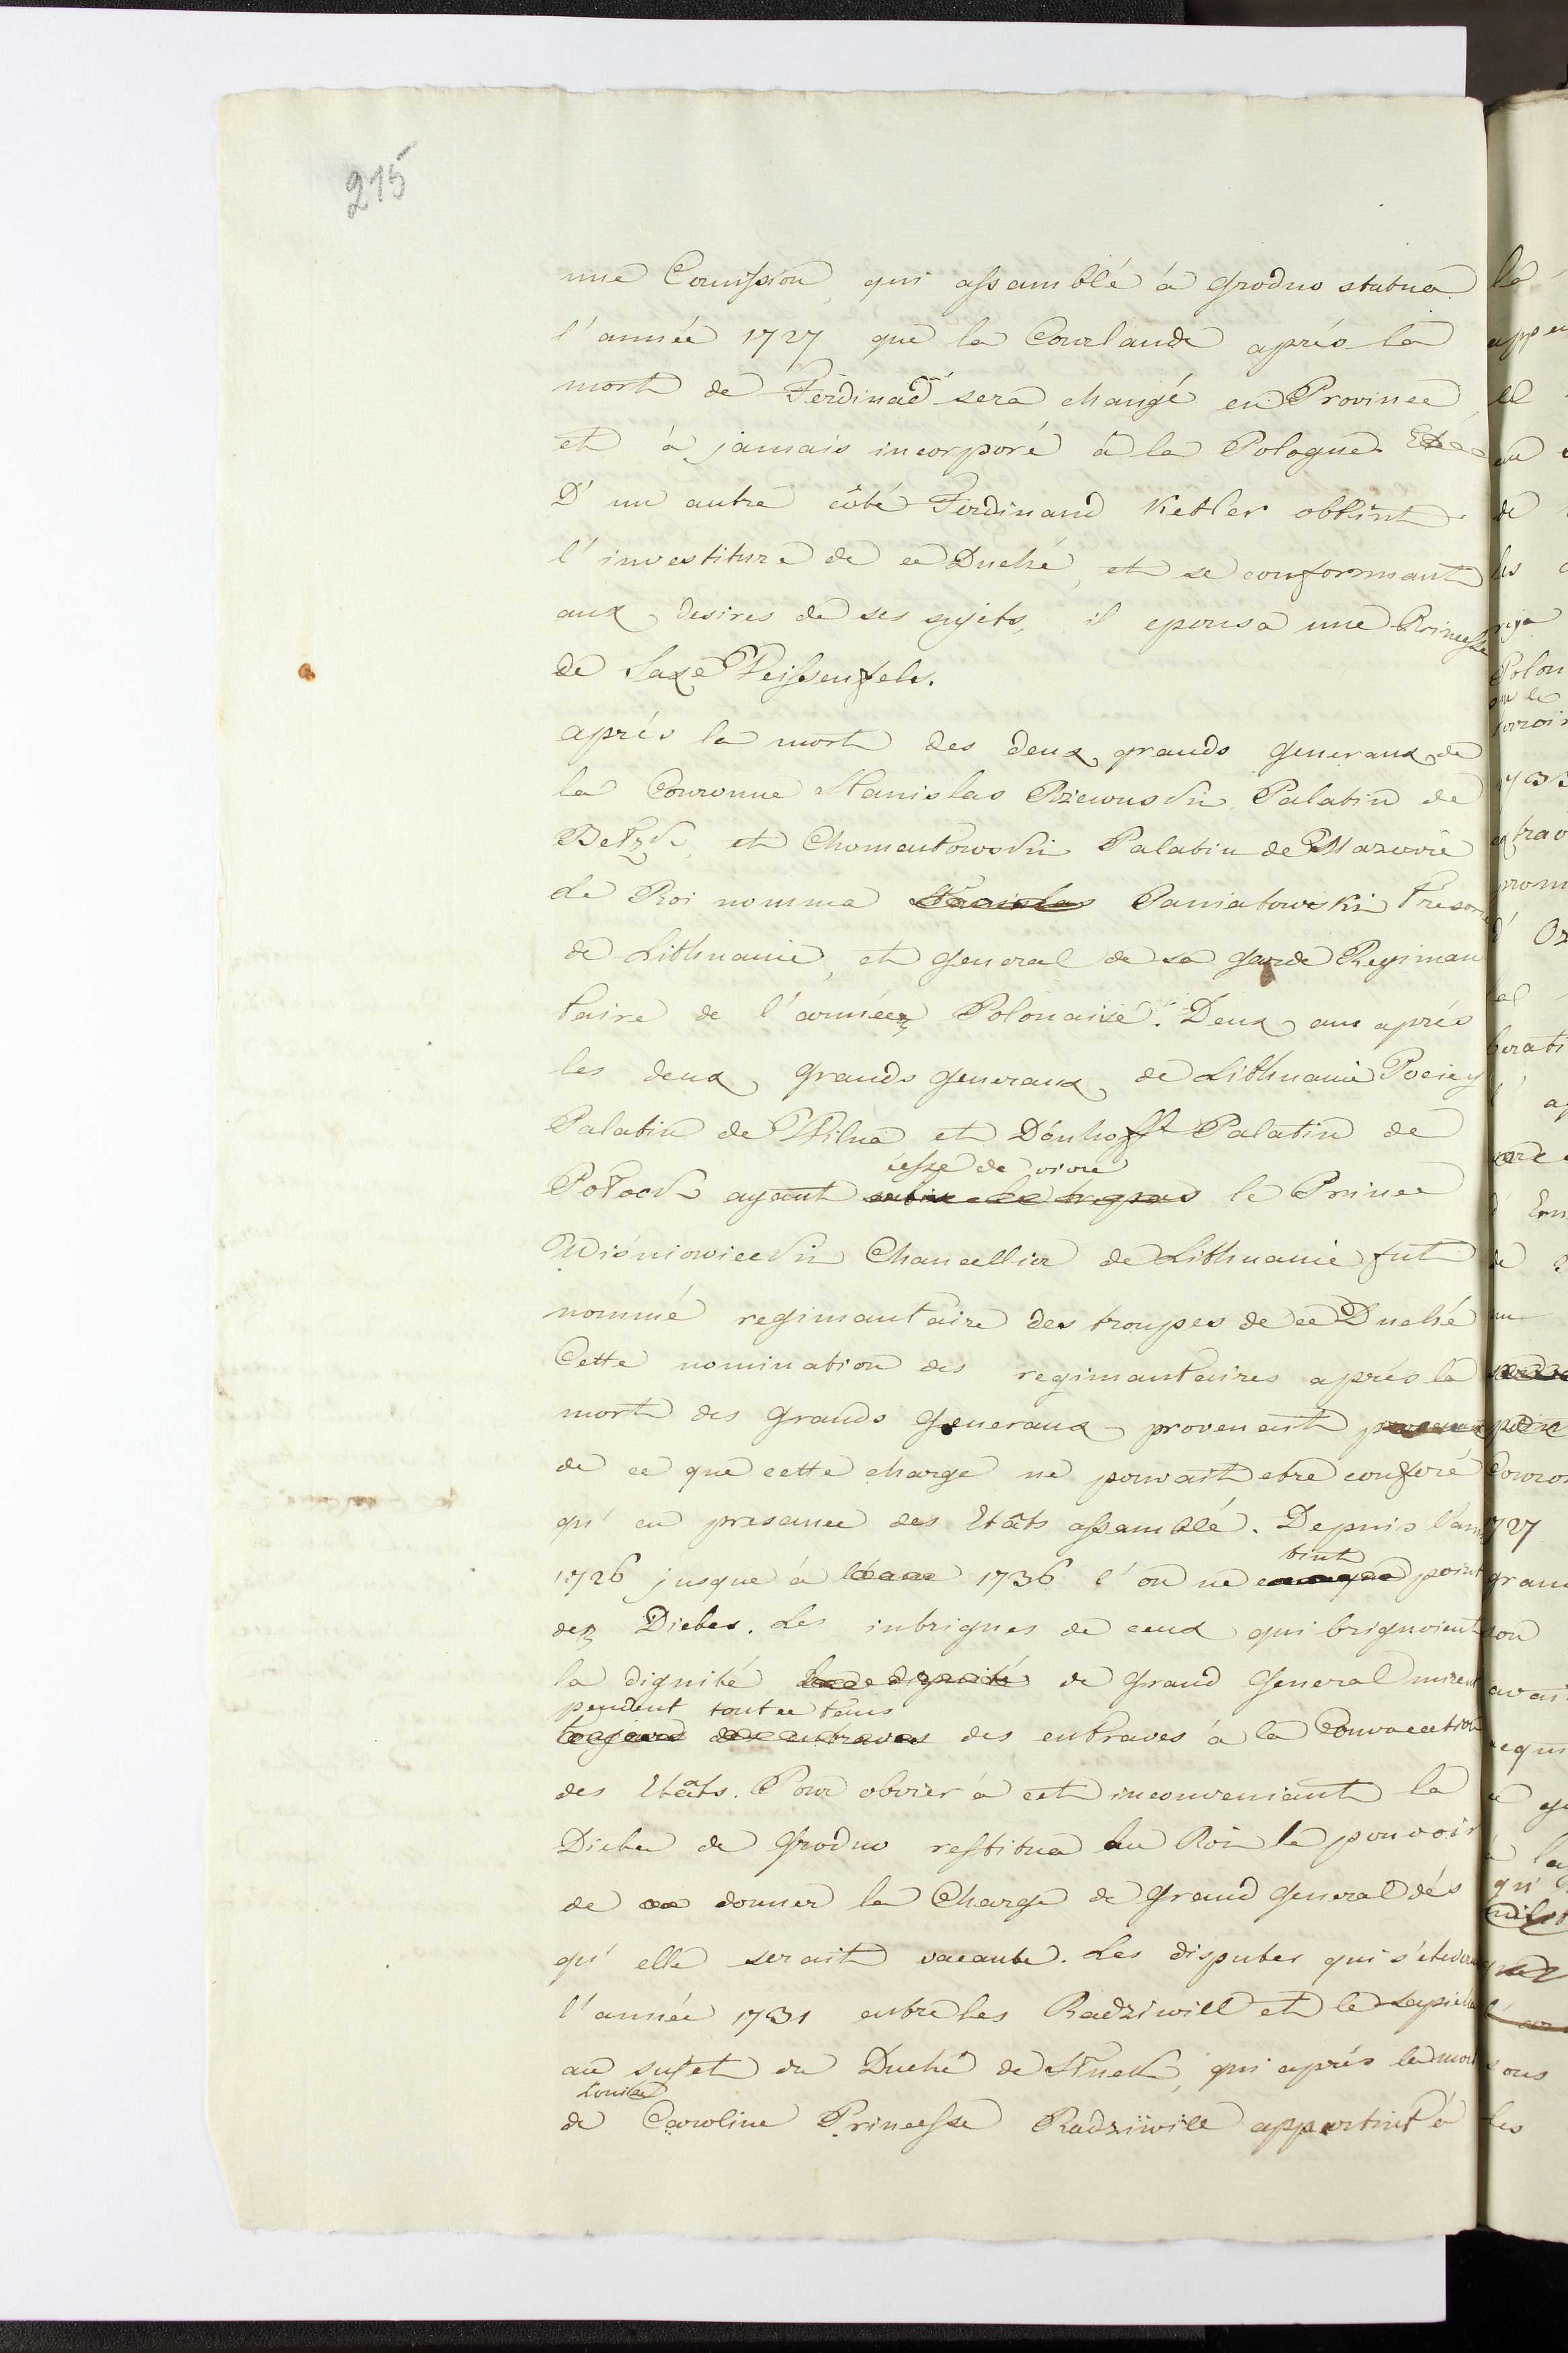 215
une Comission, qui assamblé à Grodno statua
l'année 1727 que la Courlande aprés la
mort de Ferdinad sera changé en Province,
et à jamais incorporé à la Pologne.
D'un autre côté Ferdinand Ketler obtint
l'investiture de ce Duché, et se conformant
aux desires de ses sujets, il epousa une Princesse
de Saxe Weissenfels.
aprés la mort des deux grands generaux de
la Couronne Stanislas Rzewuski, Palatin de
Bełzk, et Chomentowski Palatin de Mazovie
Le Roi nomma Stanislas Paniatowski Tresorie
de Lithuanie, et General de sa garde Regiman
taire de l'année Polonaise. Deux ans aprés
les deux grands generaux de Lithuanie Pociey
Palatin de Wilna et Dönhoff Palatin de
cessé de vivre
Połock ayant subis le trepas le Prince
Wiśniowiecki Chancellier de Lithuanie fut
nommé regimantaire des troupes de ce Duché
Cette nomination des regimantaires aprés la
mort des Grands Generaux provenent
de ce que cette charge ne pouvait etre conferé
qu'en presance des Etâts assamblé. Depuis l'ann
tint
1726 jusque à 1736 l'on ne point
des Dietes. Les intrigues de ceux qui briguoient
la dignité de Grand General mirent
pendent tout ce tems
toujours des entraves des entraves à la Convocation
des Etâts. Pour obvier à cet inconveniant la
Diete de Grodno restitua au Roi le pouvoir
de donner la Charge de Grand General dés
qu'elle serait vacante. Les disputes qui s'eleverent
l'année 1731 entre les Radziwill et le Sapieha
au sujet du Duché de Słuck, qui aprés la mort
Louise
de Caroline Princesse Radziwill appartint à